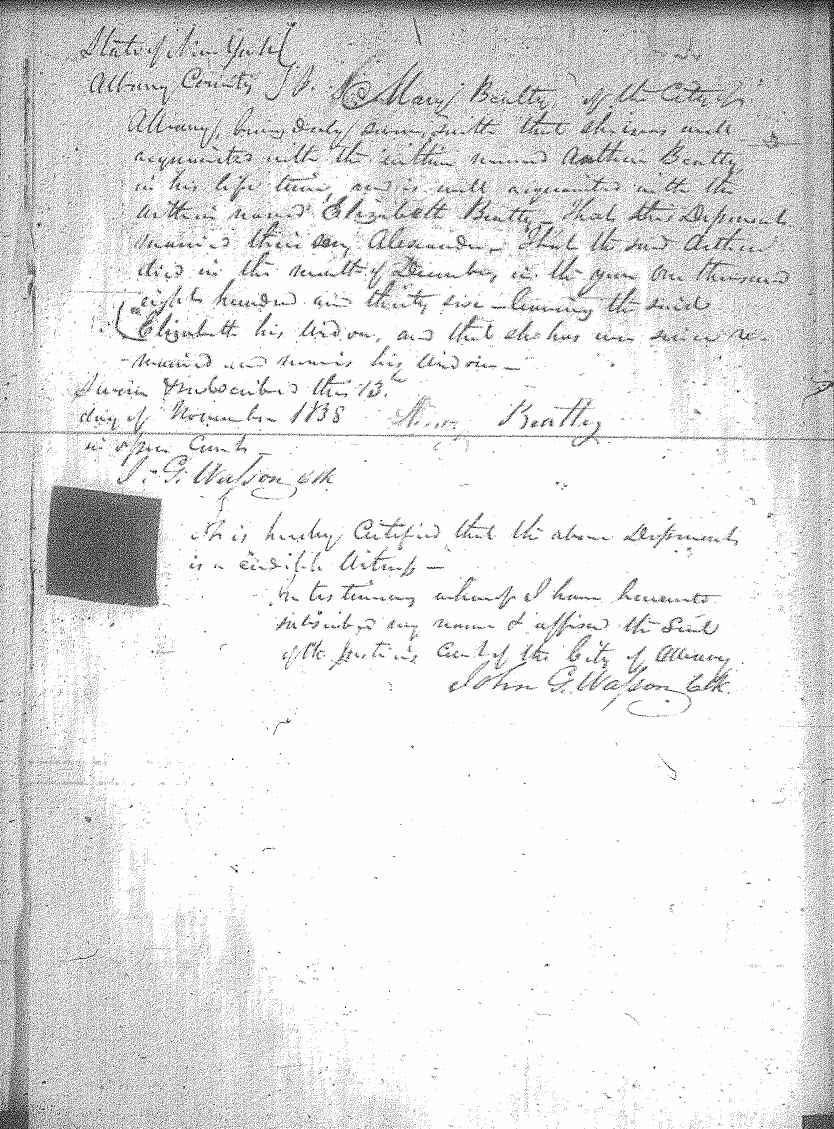 State of New York
Albany County SS. Mary Beatty of the City of
Albany, being duly sworn, saith that she was well
acquainted with the within named Arthur Beatty
in his life time, and is well acquainted with the
within named Elizabeth Beatty. That this Deponent
married their son, Alexander. That the said Arthur
died in the month of December, in the year one thousand
eight hundred and thirty six - leaving the said
Elizabeth his Widow, and that she has not since re-
married and remains his Widow -
Sworn & subscribed this 13.th
day of November 1838 Mary Beatty
in open Court
J. G. Wasson Clk.
It is hereby Certified that the above Deponent
is a credible Witness -
In testimony whereof I have hereunto
subscribed my name & affixed the Seal
of the Justices Court of the City of Albany
John G. Wasson Clk.